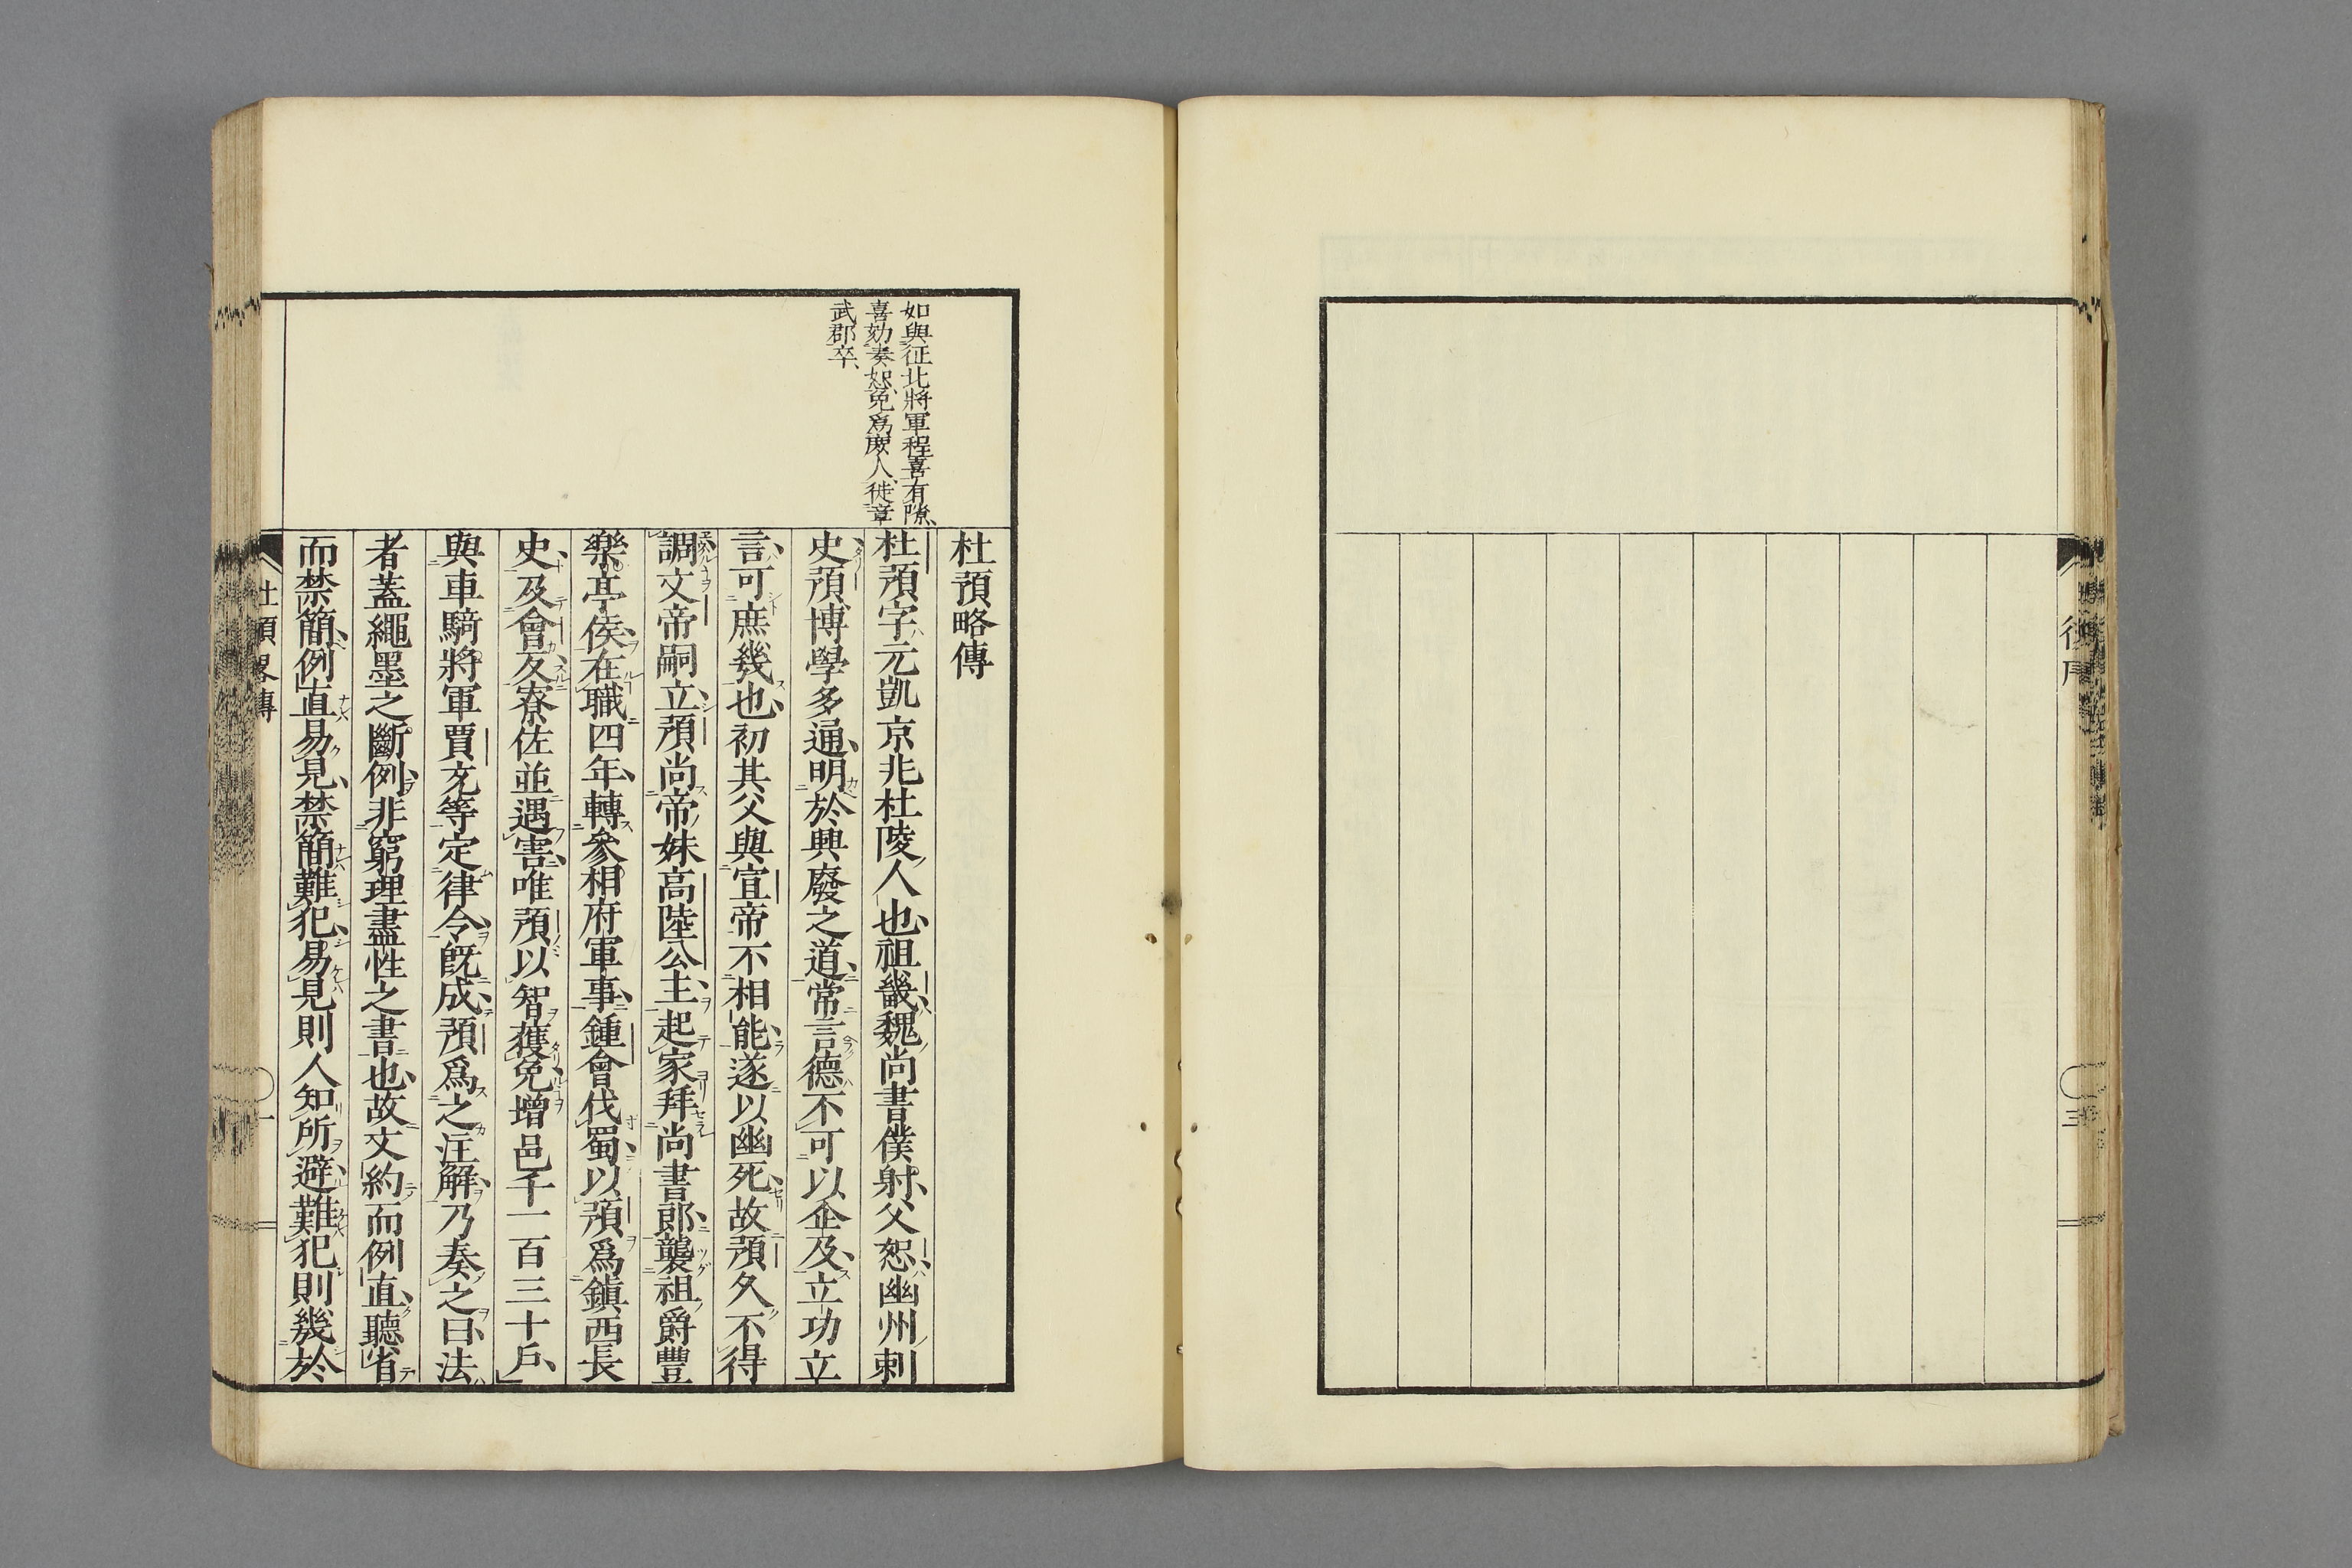 後序
三
如與征北將軍程喜有隙、
喜劾奏恕、免爲庶人、徙章
武郡卒、
杜預略傳
杜預字元凱京兆杜陵人也、祖畿、魏尚書僕射、父恕、幽州刺
史、預博學多通、明於興廢之道、常言德不可以企及、立功立
言、可庶幾也、初其父與宣帝不相能、遂以幽死、故預久不得
調、文帝嗣立、預尚帝妹高陸公主、起家拜尚書郎、襲祖爵豐
樂亭侯、在職四年、轉參相府軍事、鍾會伐蜀、以預爲鎮西長
史、及會反、寮佐並遇害、唯預以智獲免、增邑千一百三十戶、
與車騎將軍賈充等定律令、既成、預爲之注解、乃奏之曰、法
者蓋繩墨之斷例、非窮理盡性之書也、故文約而例直、聽省
而禁簡、例直易見、禁簡難犯、易見則人知所避、難犯則幾於
杜預畧傳
一